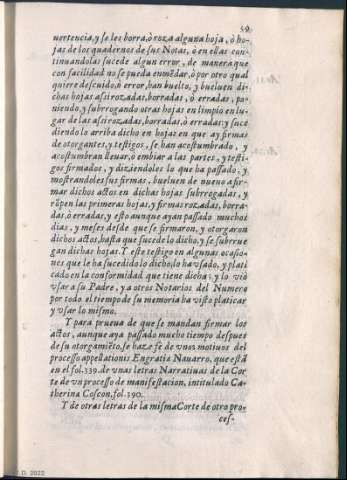 59.
uertencia, y se les borra, ò roza alguna hoja, ò ho-
jas de los quadernos de sus Notas, ò en ellas con-
tinuandolas sucede algun error, de manera que
con facilidad no se pueda enmẽdar, ò por otro qual
quiere descuido, ò error, han buelto, y bueluen di-
chas hojas assi rozadas, borradas, ò erradas, po-
niendo, y subrrogando otras hojas en limpio en lu-
gar de las assi rozadas, borradas, ò erradas: y suce
diendo lo arriba dicho en hojas en que ay firmas
de otorgantes, y testigos, se han acostumbrado, y
acostumbran lleuar, ò embiar a las partes, y testi-
gos firmados, y diziendoles lo que ha passado, y
mostrandoles sus firmas, bueluen de nueuo a fir-
mar dichos actos en dichas hojas subrrogadas, y
rõpen las primeras hojas, y firmas rozadas, borra-
das, ò erradas, y esto aunque ayan passado muchos
dias, y meses desde que se firmaron, y otorgaron
dichos actos, hasta que sucede lo dicho, y se subrrue
gan dichas hojas. Y este testigo en algunas ocasio-
nes que le ha sucedido lo dicho, lo ha vsado, y plati
cado en la conformidad que tiene dicha, y lo viò
vsar a su Padre, y a otros Notarios del Numero
por todo el tiempo de su memoria ha visto platicar
y vsar lo mismo.
Y para prueua de que se mandan firmar los
actos, aunque aya passado mucho tiempo despues
de su otorgamiẽto, se haze fe de vnos motiuos del
processo appellationis Engratia Nauarro, que està
en el fol. 339. de vnas letras Narratiuas de la Cor
te de vn processo de manifestacion, intitulado Ca-
therina Coscon, fol. 390.
Y de otras letras de la misma Corte de otro pro-
ces-
D. 2022